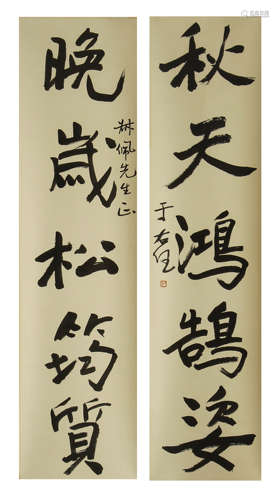 秋天鴻鵠姿
于右任
佩先生正
晚歲松筠質